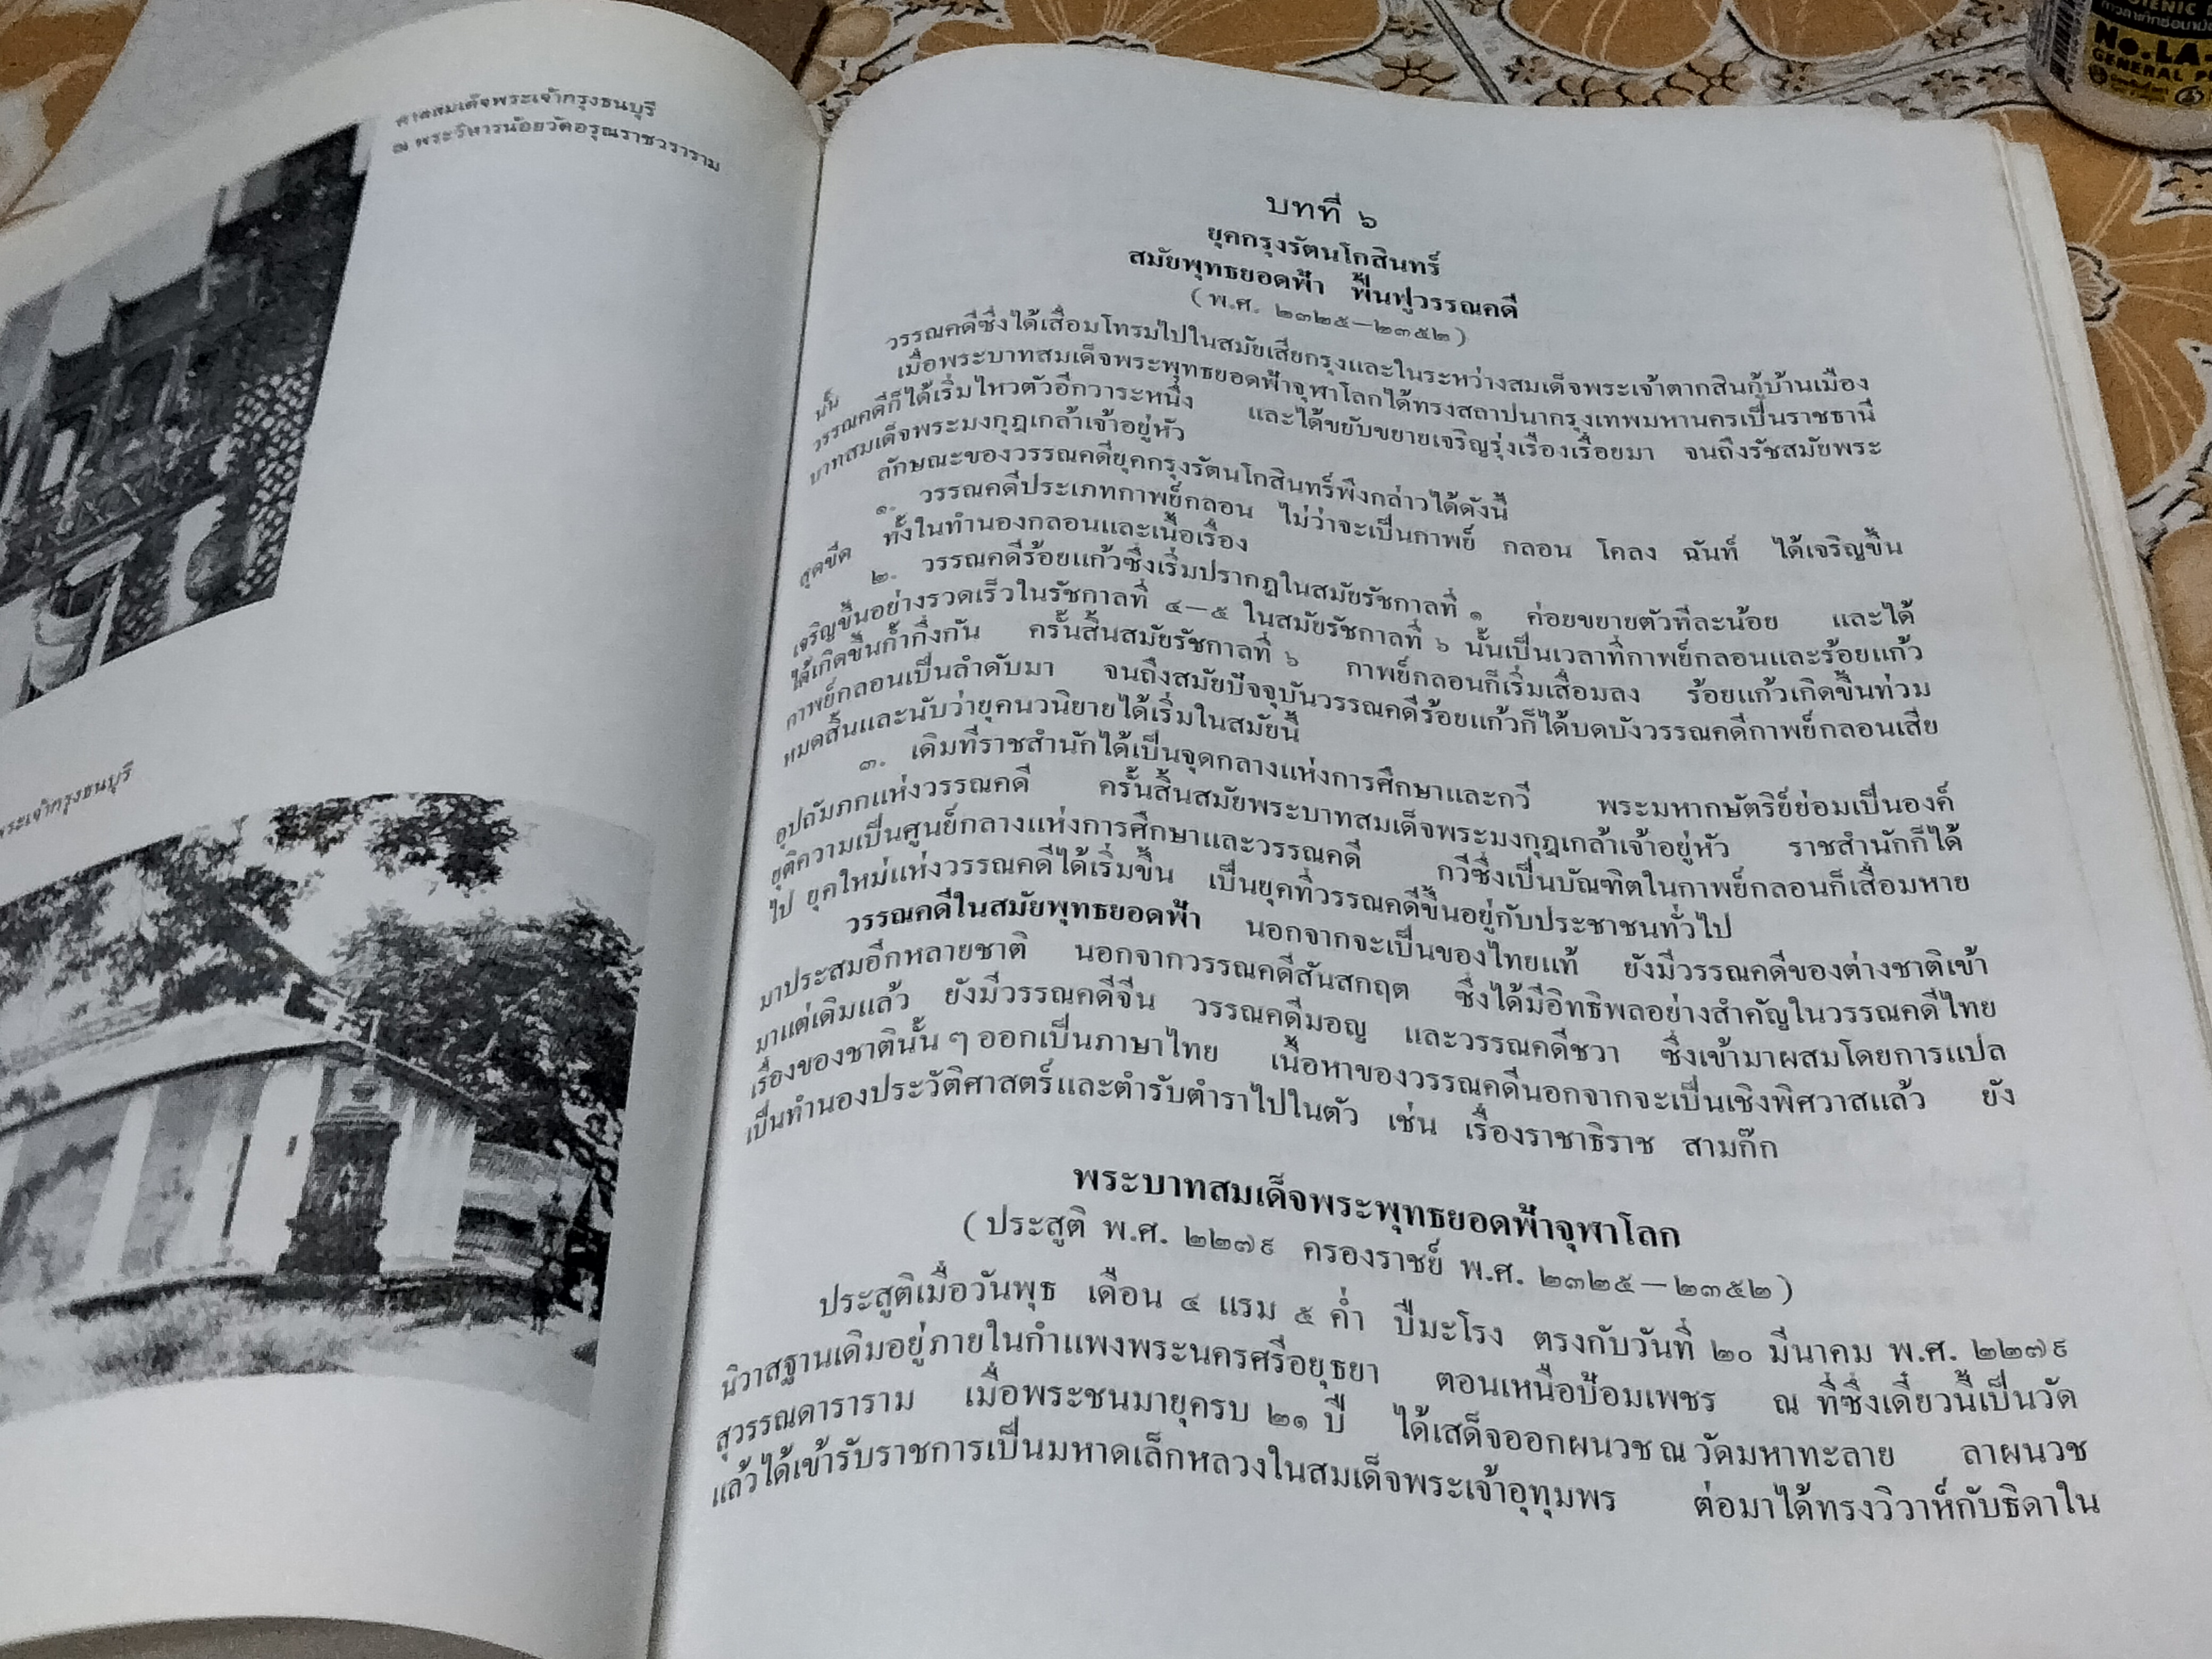 ศาลสมเด็จพระเจ้ากรุงธนบุรี
ณ พระวิหารน้อยวัดอรุณราชวราราม
พระเจ้ากรุงธนบุรี
บทที่ ๖
ยุคกรุงรัตนโกสินทร์
สมัยพุทธยอดฟ้า ฟื้นฟูวรรณคดี
(พ.ศ. ๒๓๒๕—๒๓๕๒)
วรรณคดีซึ่งได้เสื่อมโทรมไปในสมัยเสียกรุงและในระหว่างสมเด็จพระเจ้าตากสินกู้บ้านเมือง
นั้น เมื่อพระบาทสมเด็จพระพุทธยอดฟ้าจุฬาโลกได้ทรงสถาปนากรุงเทพมหานครเป็นราชธานี
วรรณคดีก็ได้เริ่มไหวตัวอีกวาระหนึ่ง และได้ขยับขยายเจริญรุ่งเรืองเรื่อยมา จนถึงรัชสมัยพระ
บาทสมเด็จพระมงกุฎเกล้าเจ้าอยู่หัว
ลักษณะของวรรณคดียุคกรุงรัตนโกสินทร์พึงกล่าวได้ดังนี้
๑. วรรณคดีประเภทกาพย์กลอน ไม่ว่าจะเป็นกาพย์ กลอน โคลง ฉันท์ ได้เจริญขึ้น
สุดขีด ทั้งในทำนองกลอนและเนื้อเรื่อง
๒. วรรณคดีร้อยแก้วซึ่งเริ่มปรากฎในสมัยรัชกาลที่ ๑ ค่อยขยายตัวทีละน้อย และได้
เจริญขึ้นอย่างรวดเร็วในรัชกาลที่ ๔—๕ ในสมัยรัชกาลที่ ๖ นั้นเป็นเวลาที่กาพย์กลอนและร้อยแก้ว
ได้เกิดขึ้นก้ำกึ่งกัน ครั้นสิ้นสมัยรัชกาลที่ ๖ กาพย์กลอนก็เริ่มเสื่อมลง ร้อยแก้วเกิดขึ้นท่วม
กาพย์กลอนเป็นลำดับมา จนถึงสมัยปัจจุบันวรรณคดีร้อยแก้วก็ได้บดบังวรรณคดีกาพย์กลอนเสีย
หมดสิ้นและนับว่ายุคนวนิยายได้เริ่มในสมัยนี้
๓. เดิมทีราชสำนักได้เป็นจุดกลางแห่งการศึกษาและกวี พระมหากษัตริย์ย่อมเป็นองค์
อุปถัมภกแห่งวรรณคดี ครั้นสิ้นสมัยพระบาทสมเด็จพระมงกุฎเกล้าเจ้าอยู่หัว ราชสำนักก็ได้
ยุติความเป็นศูนย์กลางแห่งการศึกษาและวรรณคดี กวีซึ่งเป็นบัณฑิตในกาพย์กลอนก็เสื่อมหาย
ไป ยุคใหม่แห่งวรรณคดีได้เริ่มขึ้น เป็นยุคที่วรรณคดีขึ้นอยู่กับประชาชนทั่วไป
วรรณคดีในสมัยพุทธยอดฟ้า นอกจากจะเป็นของไทยแท้ ยังมีวรรณคดีของต่างชาติเข้า
มาประสมอีกหลายชาติ นอกจากวรรณคดีสันสกฤต ซึ่งได้มีอิทธิพลอย่างสำคัญในวรรณคดีไทย
มาแต่เดิมแล้ว ยังมีวรรณคดีจีน วรรณคดีมอญ และวรรณคดีชวา ซึ่งเข้ามาผสมโดยการแปล
เรื่องของชาตินั้น ๆ ออกเป็นภาษาไทย เนื้อหาของวรรณคดีนอกจากจะเป็นเชิงพิศวาสแล้ว ยัง
เป็นทำนองประวัติศาสตร์และตำรับตำราไปในตัว เช่น เรื่องราชาธิราช สามก๊ก
พระบาทสมเด็จพระพุทธยอดฟ้าจุฬาโลก
(ประสูติ พ.ศ. ๒๒๗๙ ครองราชย์ พ.ศ. ๒๓๒๕—๒๓๕๒)
ประสูติเมื่อวันพุธ เดือน ๔ แรม ๕ ค่ำ ปีมะโรง ตรงกับวันที่ ๒๐ มีนาคม พ.ศ. ๒๒๗๙
นิวาสฐานเดิมอยู่ภายในกำแพงพระนครศรีอยุธยา ตอนเหนือป้อมเพชร ณ ที่ซึ่งเดี๋ยวนี้เป็นวัด
สุวรรณดาราราม เมื่อพระชนมายุครบ ๒๑ ปี ได้เสด็จออกผนวช ณ วัดมหาทะลาย ลาผนวช
แล้วได้เข้ารับราชการเป็นมหาดเล็กหลวงในสมเด็จพระเจ้าอุทุมพร ต่อมาได้ทรงวิวาห์กับธิดาใน
No.LA-
GENERAL P